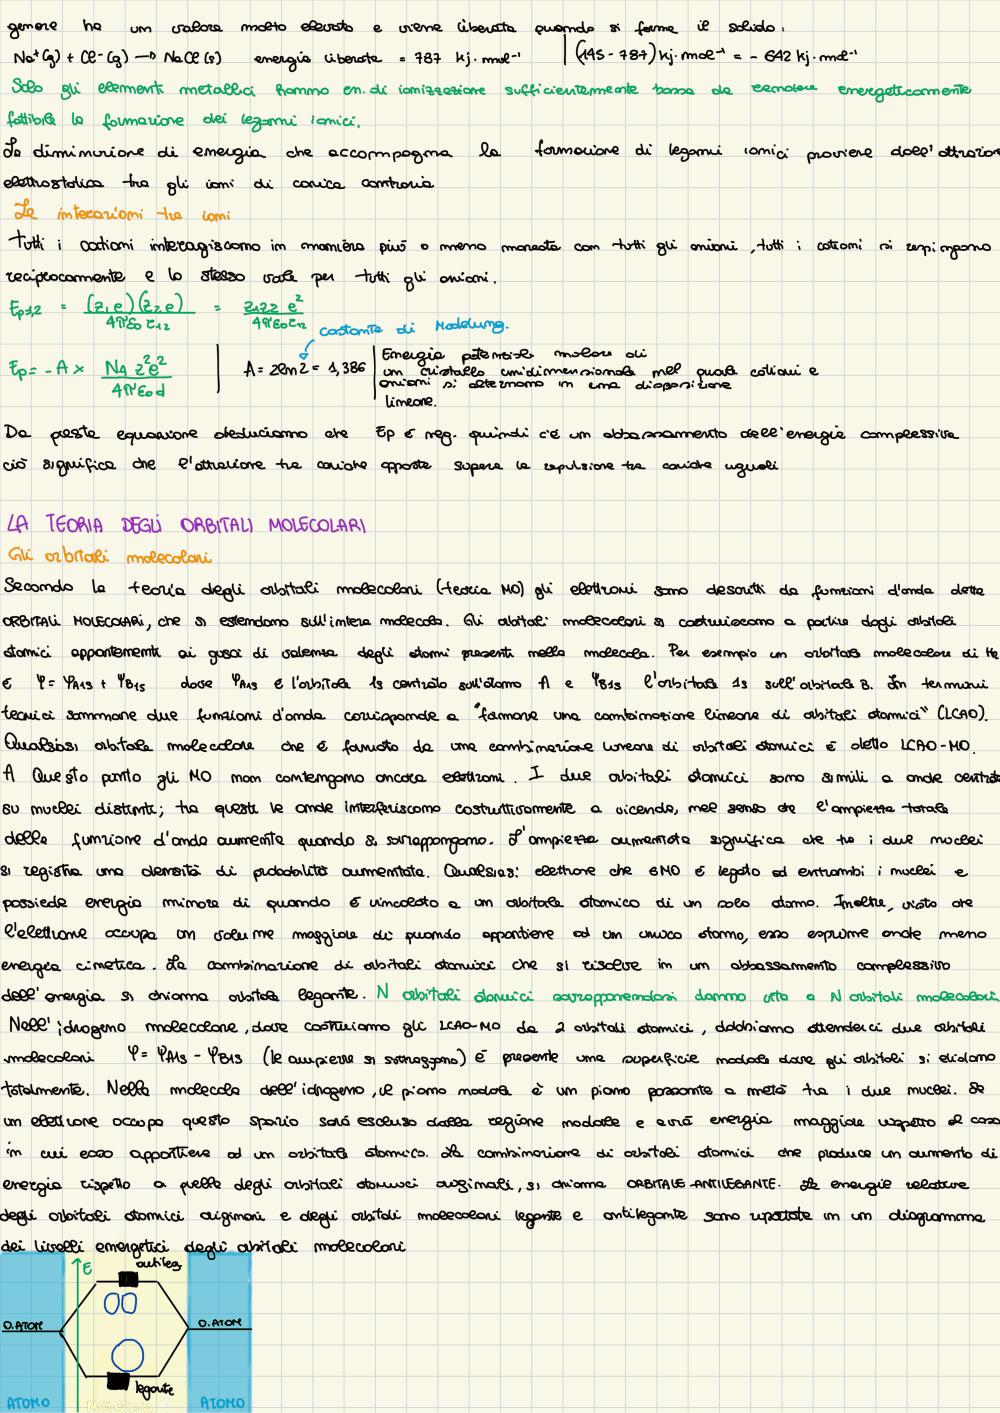 genere ha un valore molto elevato e viene liberata quando si forma il solido.
Na⁺(g) + Cl⁻(g) → NaCl(s) energia liberata = 787 kj·mol⁻¹ | (145 - 787) kj·mol⁻¹ = - 642 kj·mol⁻¹
Solo gli elementi metallici hanno en. di ionizzazione sufficientemente bassa da rendere energeticamente
fattibile la formazione dei legami ionici.
La diminuzione di energia che accompagna la formazione di legami ionici proviene dall'attrazione
elettrostatica tra gli ioni di carica contraria
Le interazioni tra ioni
Tutti i cationi interagiscono in maniera più o meno marcata con tutti gli anioni, tutti i cationi si respingono
reciprocamente e lo stesso vale per tutti gli anioni.
Ep1,2 = (z₁e)(z₂e) / 4πε₀r₁₂ = z₁z₂e² / 4πε₀r₁₂
costante di Madelung.
Ep = - A × NA z²e² / 4πε₀d | A = 2ln2 = 1,386 | Energia potenziale molare di
un cristallo unidimensionale nel quale cationi e
anioni si alternano in una disposizione
lineare.
Da queste equazione deduciamo che Ep è neg. quindi c'è un abbassamento dell'energia complessiva
ciò significa che l'attrazione tra cariche opposte supera la repulsione tra cariche uguali
LA TEORIA DEGLI ORBITALI MOLECOLARI
Gli orbitali molecolari
Secondo la teoria degli orbitali molecolari (teoria MO) gli elettroni sono descritti da funzioni d'onda dette
ORBITALI MOLECOLARI, che si estendono sull'intera molecola. Gli orbitali molecolari si costruiscono a partire dagli orbitali
atomici appartenenti ai gusci di valenza degli atomi presenti nella molecola. Per esempio un orbitale molecolare di H₂
è Ψ = ΨA1s + ΨB1s dove ΨA1s è l'orbitale 1s centrato sull'atomo A e ΨB1s l'orbitale 1s sull'orbitale B. In termini
tecnici sommare due funzioni d'onda corrisponde a "formare una combinazione lineare di orbitali atomici" (LCAO).
Qualsiasi orbitale molecolare che è formato da una combinazione lineare di orbitali atomici è detto LCAO-MO.
A Questo punto gli MO non contengono ancora elettroni. I due orbitali atomici sono simili a onde centrate
su nuclei distinti; tra questi le onde interferiscono costruttivamente a vicenda, nel senso che l'ampiezza totale
della funzione d'onda aumenta quando si sovrappongono. L'ampiezza aumentata significa che tra i due nuclei
si registra una densità di probabilità aumentata. Qualsiasi elettrone che è MO è legato ad entrambi i nuclei e
possiede energia minore di quando è vincolato a un orbitale atomico di un solo atomo. Inoltre, visto che
l'elettrone occupa un volume maggiore di quando appartiene ad un unico atomo, esso esprime anche meno
energia cinetica. La combinazione di orbitali atomici che si risolve in un abbassamento complessivo
dell'energia si chiama orbitale legante. N orbitali atomici sovrapponendosi danno vita a N orbitali molecolari.
Nell'idrogeno molecolare, dove costruiamo gli LCAO-MO da 2 orbitali atomici, dobbiamo attenderci due orbitali
molecolari Ψ = ΨA1s - ΨB1s (le ampiezze si sottraggono) è presente una superficie nodale dove gli orbitali si elidono
totalmente. Nella molecola dell'idrogeno, il piano nodale è un piano passante a metà tra i due nuclei. Se
un elettrone occupa questo spazio sarà escluso dalla regione nodale e avrà energia maggiore rispetto al caso
in cui esso appartiene ad un orbitale atomico. La combinazione di orbitali atomici che produce un aumento di
energia rispetto a quelle degli orbitali atomici originali, si chiama ORBITALE ANTILEGANTE. Le energie relative
degli orbitali atomici originari e degli orbitali molecolari legante e antilegante sono riportate in un diagramma
dei livelli energetici degli orbitali molecolari
E antileg
O.ATOM O.ATOM
legante
ATOMO MOLECOLA ATOMO